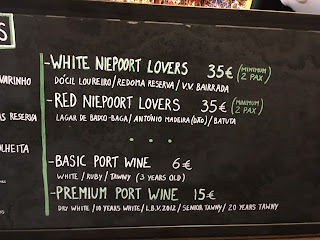 S
-WHITE NIEPOORT LOVERS 35€ (MINIMUM 2 PAX)
VARINHO
DÓCIL LOUREIRO/REDOMA RESERVA/V.V. BAIRRADA
-RED NIEPOORT LOVERS 35€ (MINIMUM 2 PAX)
AS RESERVA
LAGAR DE BAIXO-BAGA/ANTÓNIO MADEIRA(DÃO)/BATUTA
OLHEITA
-BASIC PORT WINE 6€
WHITE/RUBY/TAWNY (3 YEARS OLD)
-PREMIUM PORT WINE 15€
DRY WHITE/10 YEARS WHITE/L.B.V. 2012/SENIOR TAWNY/20 YEARS TAWNY